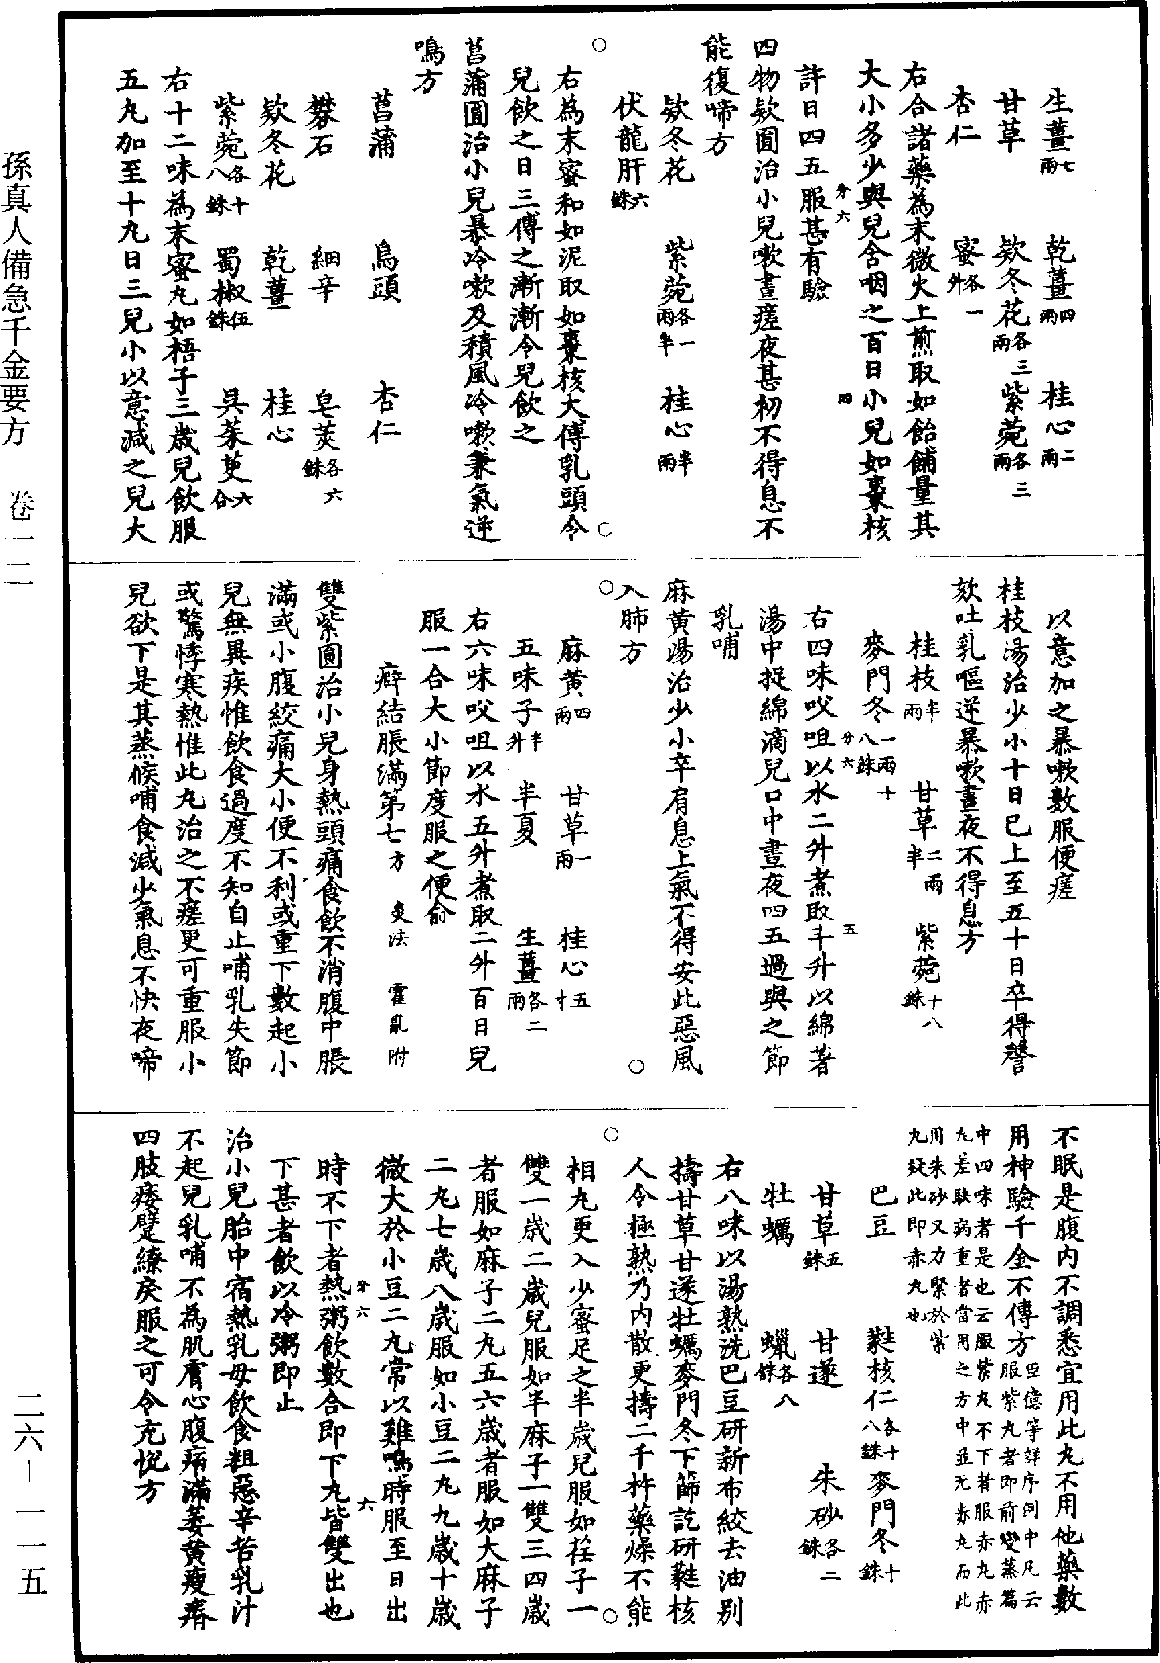 生薑七兩　乾薑四兩　桂心二兩
甘草　款冬花各三兩　紫菀各三兩
杏仁　蜜各一升
右合諸藥為末微火上煎取如飴餔量其
大小多少與兒含咽之百日小兒如棗核
許日四五服甚有驗
四物款圓治小兒嗽晝瘥夜甚初不得息不
能復啼方
款冬花　紫菀各一兩半　桂心半兩
伏龍肝六銖
右為末蜜和如泥取如棗核大傅乳頭令
兒飲之日三傅之漸漸令兒飲之
菖蒲圓治小兒暴冷嗽及積風冷嗽兼氣逆
鳴方
菖蒲　烏頭　杏仁
礬石　細辛　皂莢各六銖
款冬花　乾薑　桂心
紫菀各十八銖　蜀椒伍銖　吳茱萸六合
右十二味為末蜜丸如梧子三歲兒飲服
五丸加至十丸日三兒小以意減之兒大
以意加之暴嗽數服便瘥
桂枝湯治少小十日已上至五十日卒得謦
欬吐乳嘔逆暴嗽晝夜不得息方
桂枝半兩　甘草二兩半　紫菀十八銖
麥門冬一兩十八銖
右四味㕮咀以水二升煮取半升以綿著
湯中捉綿滴兒口中晝夜四五過與之節
乳哺
麻黃湯治少小卒肩息上氣不得安此惡風
入肺方
麻黃四兩　甘草一兩　桂心五寸
五味子半升　半夏　生薑各二兩
右六味㕮咀以水五升煮取二升百日兒
服一合大小節度服之便俞
癖結脹滿第七方　灸法　霍亂附
雙紫圓治小兒身熱頭痛食飲不消腹中脹
滿或小腹絞痛大小便不利或重下數起小
兒無異疾惟飲食過度不知自止哺乳失節
或驚悸寒熱惟此丸治之不瘥更可重服小
兒欲下是其蒸候哺食減少氣息不快夜啼
不眠是腹內不調悉宜用此丸不用他藥數
用神驗千金不傳方臣億等詳序例中凡云服紫丸者即前變蒸篇
中四味者是也云服紫丸不下者服赤丸赤丸差駃病重者當用之方中並无赤丸而此
用朱砂又力緊於紫丸疑此即赤丸也
巴豆　蕤核仁各十八銖　麥門冬十銖
甘草五銖　甘遂　朱砂各二銖
牡蠣　蠟各八銖
右八味以湯熟洗巴豆研新布絞去油別
擣甘草甘遂牡蠣麥門冬下篩訖研蕤核
人令極熟乃內散更擣二千杵藥燥不能
相丸更入少蜜足之半歲兒服如荏子一
雙一歲二歲兒服如半麻子一雙三四歲
者服如麻子二丸五六歲者服如大麻子
二丸七歲八歲服如小豆二丸九歲十歲
微大於小豆二丸常以雞鳴時服至日出
時不下者熱粥飲數合即下丸皆雙出也
下甚者飲以冷粥即止
治小兒胎中宿熱乳母飲食粗惡辛苦乳汁
不起兒乳哺不為肌膚心腹痞滿萎黃瘦瘠
四肢痿躄繚戾服之可令充悅方
孫真人備急千金要方　卷一二
二六—一一五